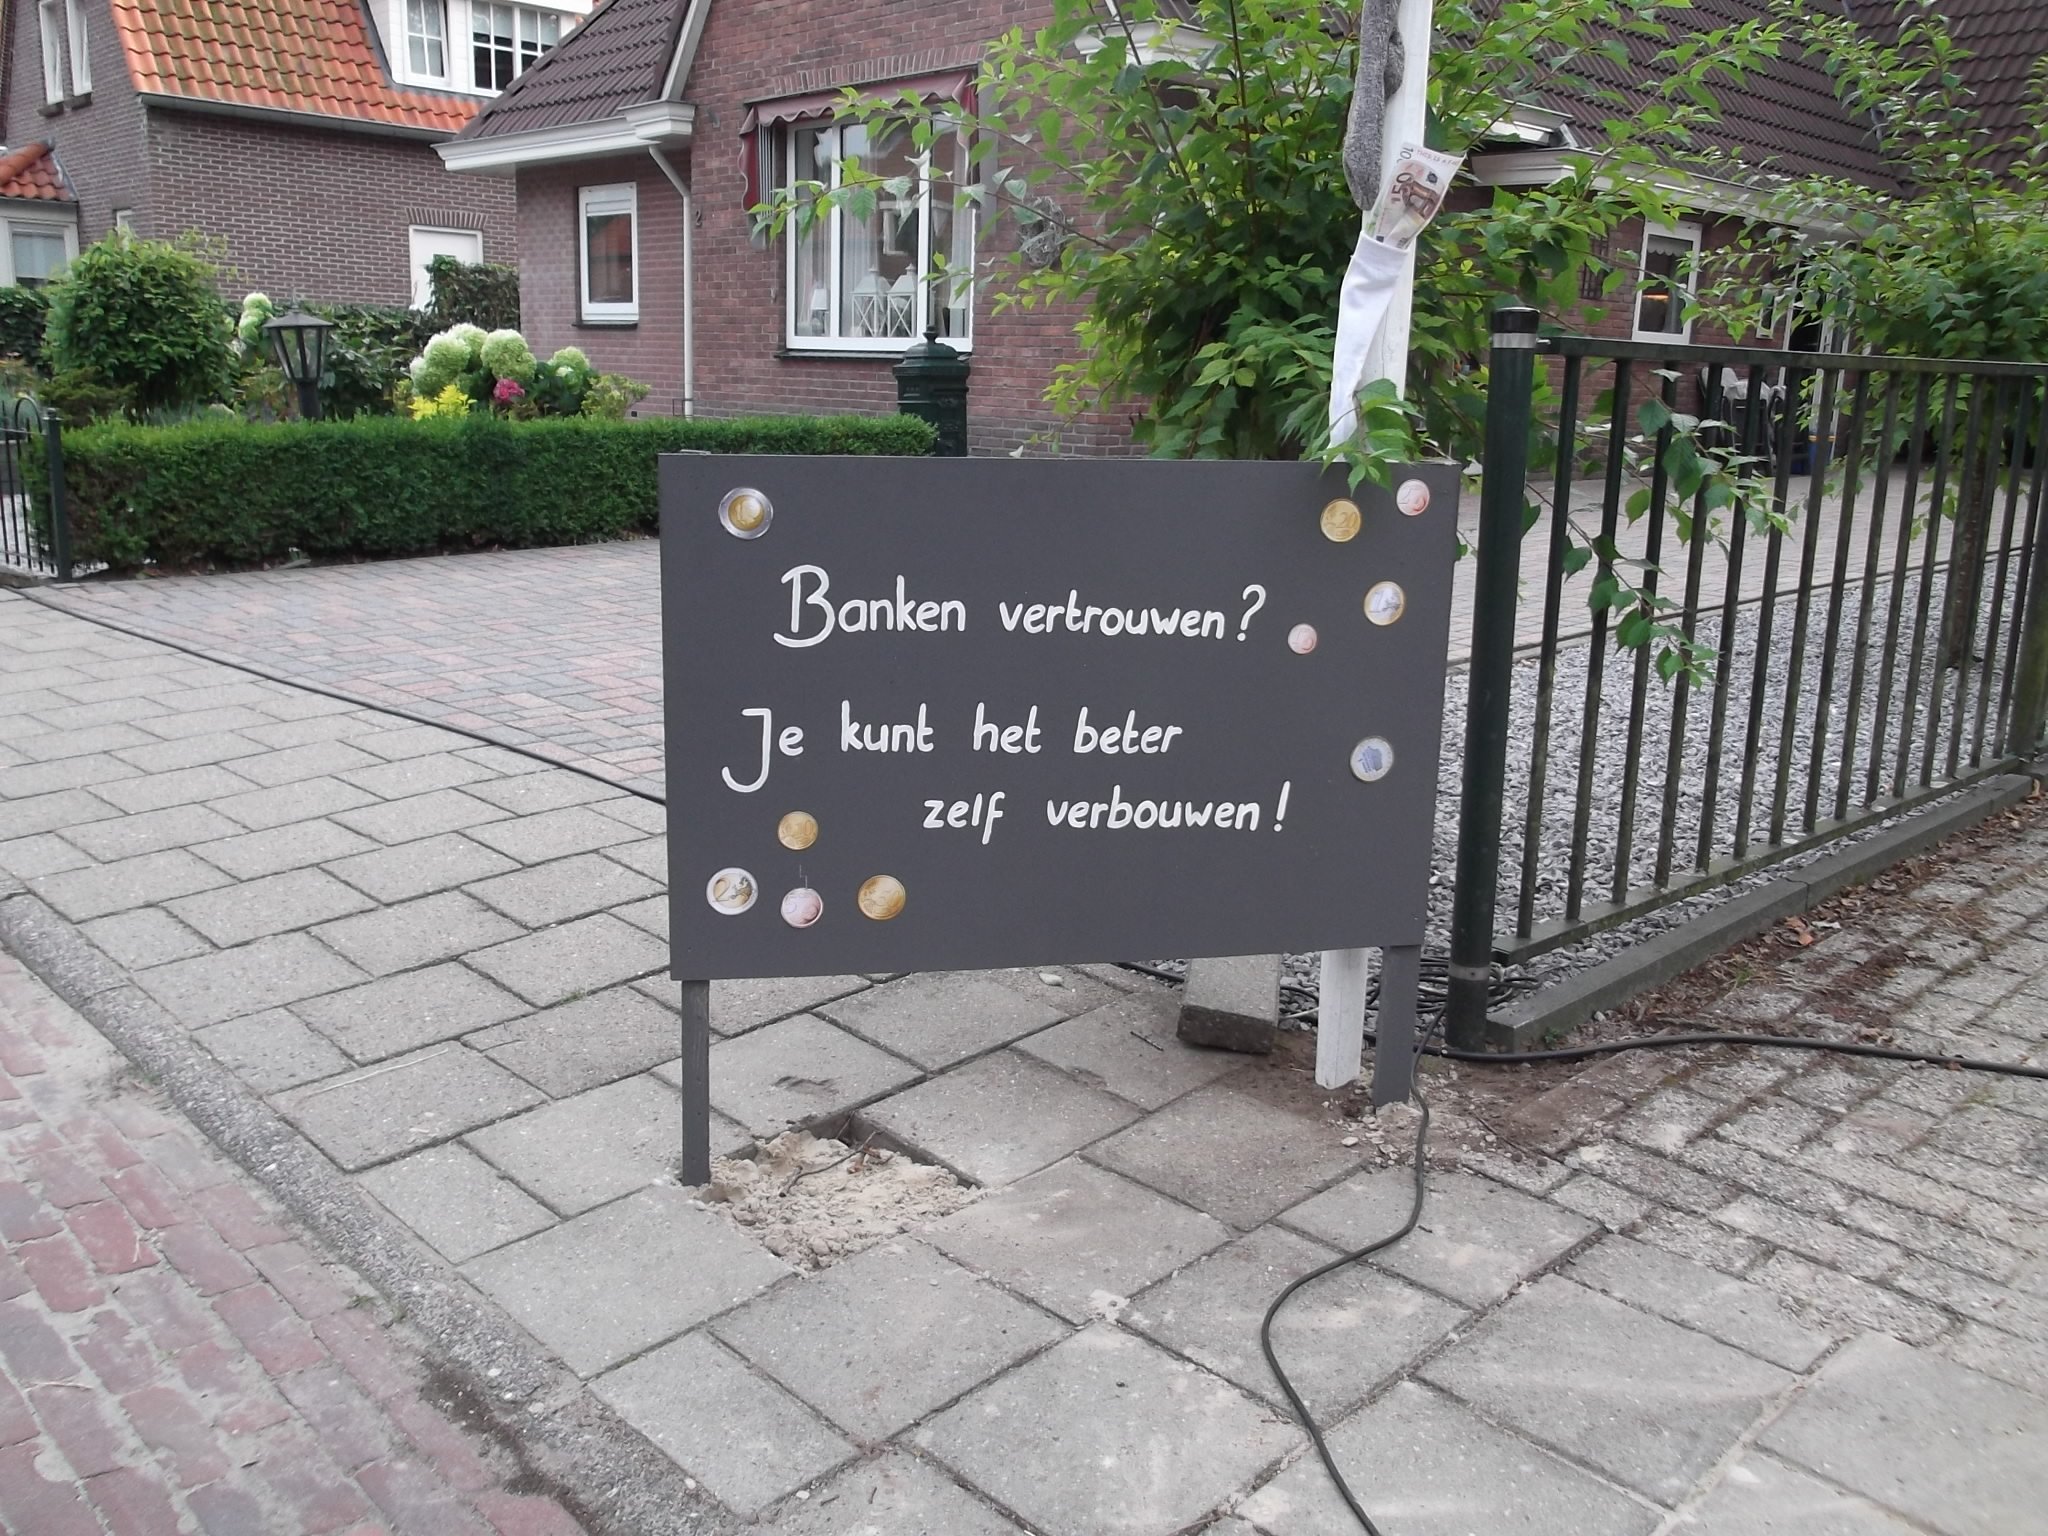 Banken vertrouwen?
Je kunt het beter
zelf verbouwen!